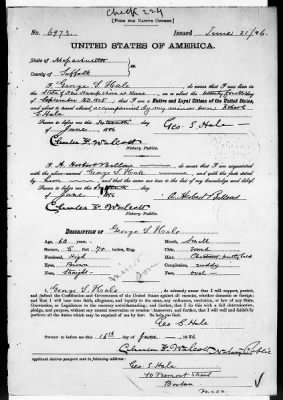 Check 224
[FORM FOR NATIVE CITIZEN.]
No. 6973. Issued June 21/86.
UNITED STATES OF AMERICA.
State of Massachusetts
County of Suffolk
I, George S. Hale, do swear that I was born in the
State of New Hampshire at Keene, on or about the twenty fourth day
of September AD 1825, that I am a Native and Loyal Citizen of the United States,
and about to travel abroad accompanied by my minor son Robert
S. Hale
Sworn to before me this Sixteenth day
of June 1886
Geo. S. Hale
Charles F. Walcott
Notary Public.
I, A. Herbert Bullow, do swear that I am acquainted
with the above-named George S. Hale, and with the facts stated
by him, and that the same are true to the best of my knowledge and belief.
Sworn to before me this Sixteenth day
of June 1886
Charles F. Walcott
Notary Public.
DESCRIPTION OF George S. Hale
Age, 60 years. Mouth, Small
Stature, 5 feet, 10 inches, Eng. Chin,
Forehead, High Hair,
Eyes, Brown Complexion, ruddy
Nose, Straight. Face, oval
I, George S. Hale, do solemnly swear that I will support, protect,
and defend the Constitution and Government of the United States against all enemies, whether domestic or foreign;
and that I will bear true faith, allegiance, and loyalty to the same, any ordinance, resolution, or law of any State,
Convention, or Legislature to the contrary notwithstanding; and further, that I do this with a full determination,
pledge, and purpose, without any mental reservation or evasion whatsoever; and further, that I will well and faithfully
perform all the duties which may be required of me by law. So help me God.
Geo. S. Hale
Sworn to before me this 16th day of June 1886
Charles F. Walcott Notary Public
Applicant desires passport sent to following address:
Geo. S. Hale
10 Tremont Street
Boston
Mass